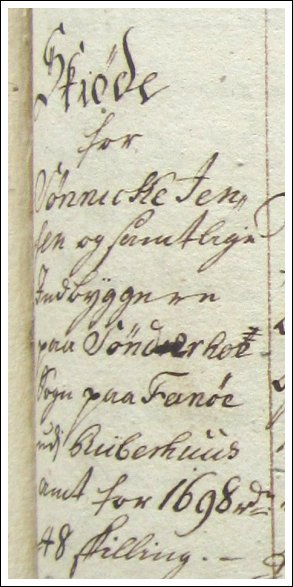 Skiöde
for
Sönnicke Jen„
sen og samtlige
Indbyggere
paa Sönderhoe
Sogn paa Fanöe
udj Riiberhuus
amt for 1698 rdr
48 skilling. –